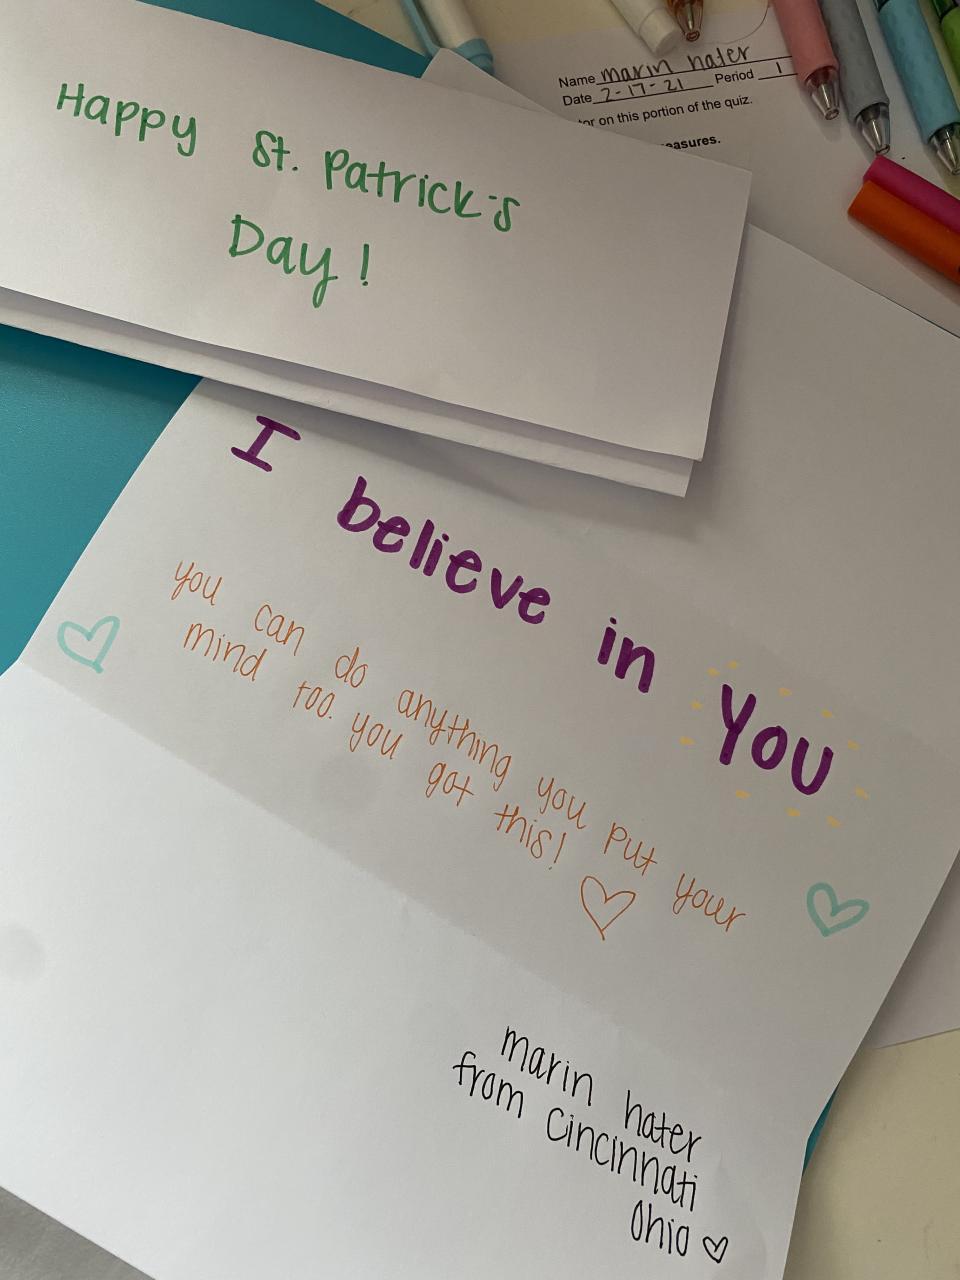 Name marin hater
Date 2-17-21 Period 1
on this portion of the quiz.
Happy St. Patrick's
Day!
I believe in You
you can do anything you put your
mind too. you got this!
marin hater
from Cincinnati
Ohio